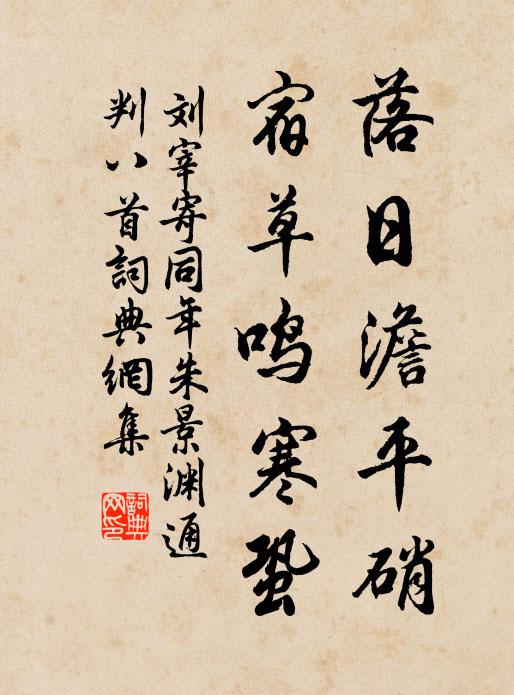 落日澹平硝
宿草鸣寒蛩
刘宰寄同年朱景渊通
判八首詞典網集
詞典网印